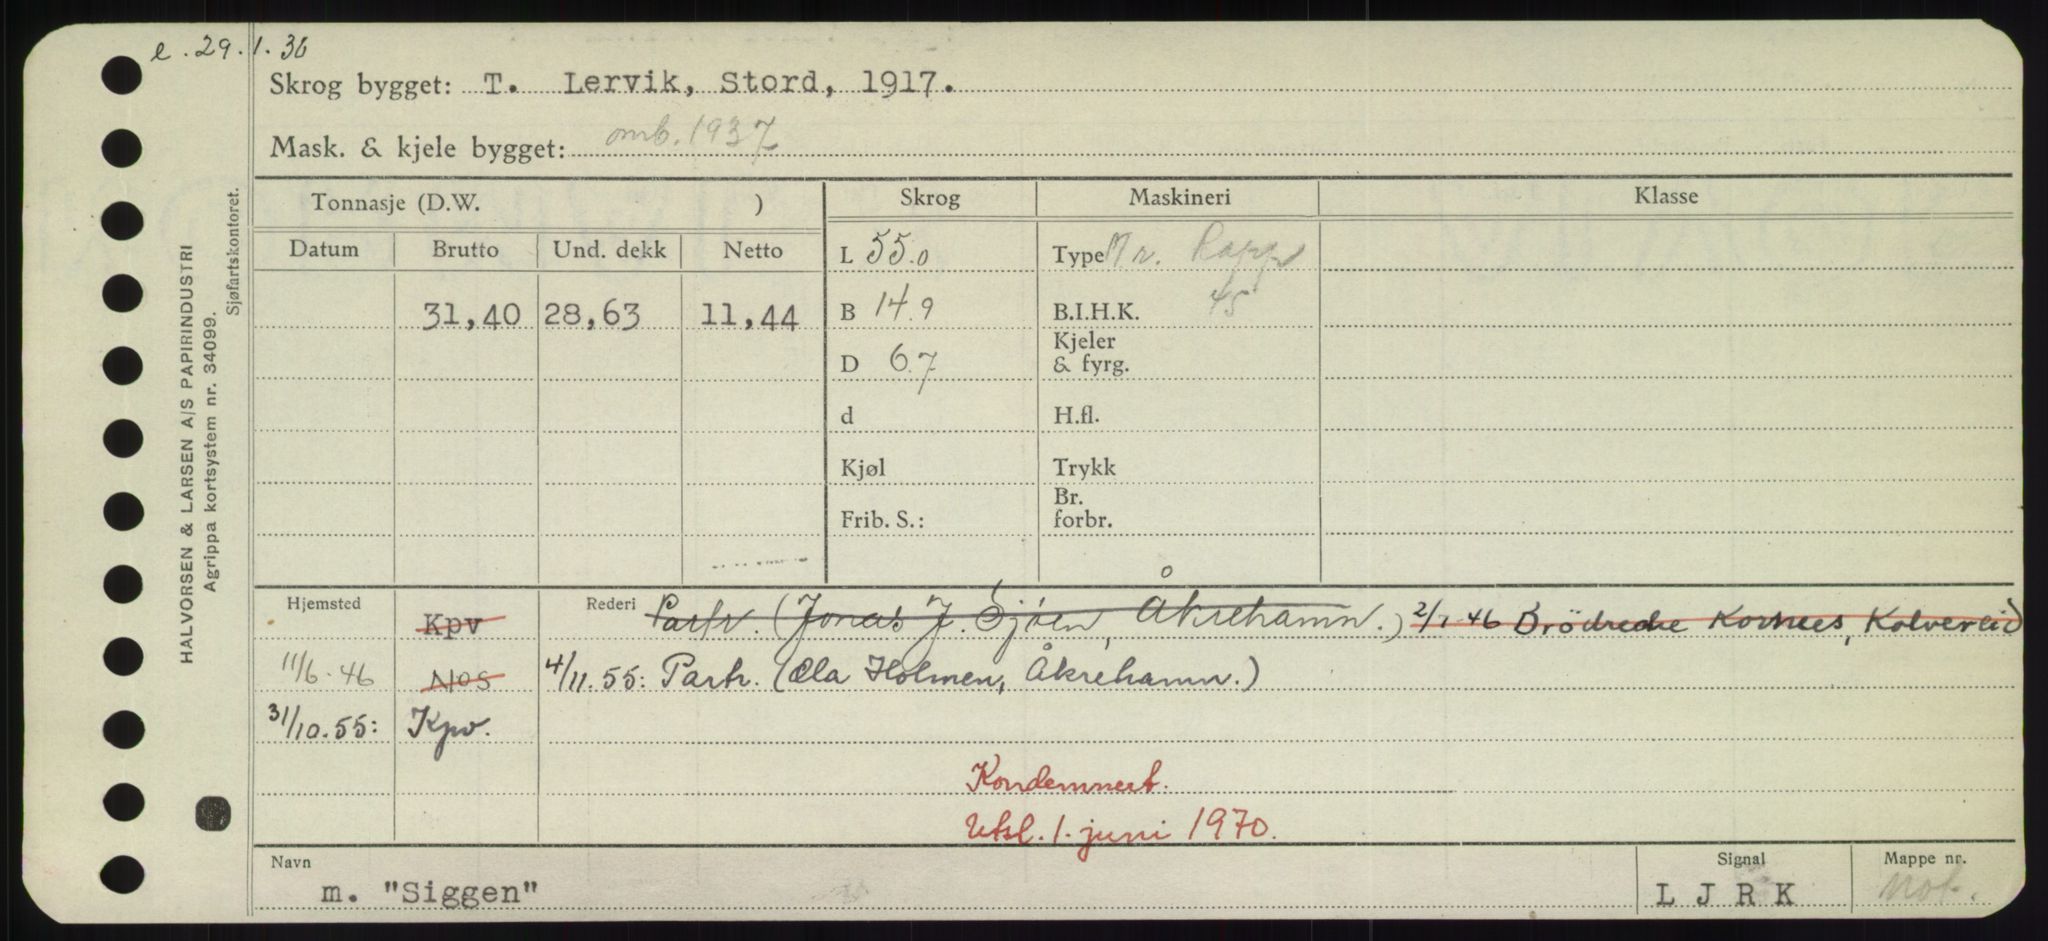 e. 29.1.36
Skrog bygget: T. Lervik, Stord, 1917.
Mask. & kjele bygget: omb. 1937
Tonnasje (D.W. ) Skrog Maskineri Klasse
Datum Brutto Und. dekk Netto
L 55.0 Type Rapp
31,40 28,63 11,44 B 14.9 B.I.H.K. 45
D 6.7 Kjeler & fyrg.
d H.fl.
Kjøl Trykk
Frib. S.: Br. forbr.
Hjemsted Kpv Rederi Partr. (Jonas J. Sjøen, Åkrehamn.) 2/1-46 Brödrene Kornes, Kolvereid
11/6-46 Nos 4/11.55: Partr. (Ola Holmen, Åkrehamn.)
31/10.55: Kpv.
Kondemnert.
Utsl. 1. juni 1970.
Navn Signal Mappe nr.
m. "Siggen" L J R K mot.
HALVORSEN & LARSEN A/S PAPIRINDUSTRI
Agrippa kortsystem nr. 34099.
Sjøfartskontoret.